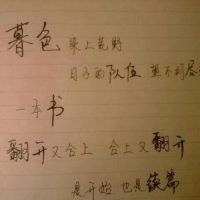 暮色 染上荒野
日子的队伍 望不到尽
一本书
翻开又合上 合上又翻开
是开始 也是续篇